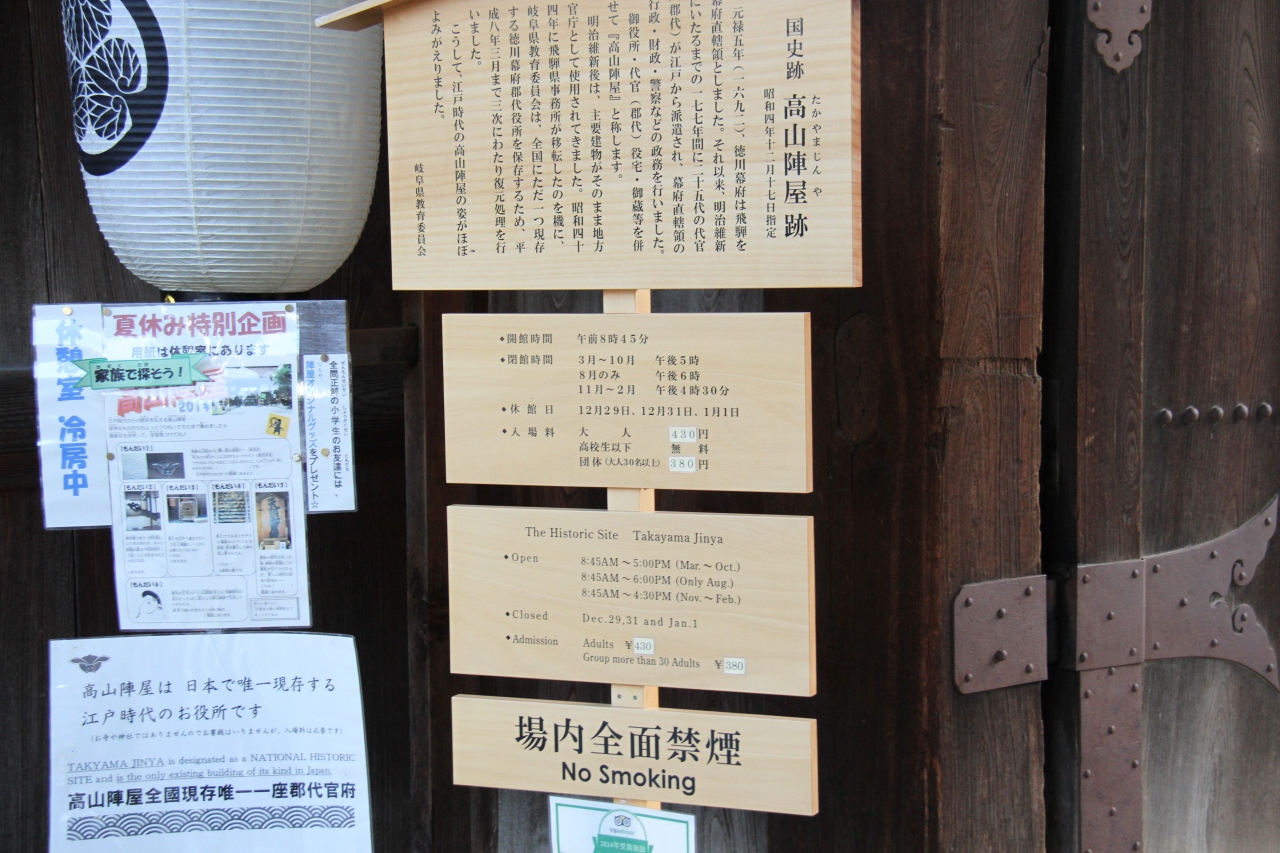 国史跡 高山陣屋跡
たかやまじんや
昭和四年十二月十七日指定
元禄五年(一六九二)、徳川幕府は飛騨を
幕府直轄領としました。それ以来、明治維新
にいたるまでの一七七年間に二十五代の代官
(郡代)が江戸から派遣され、幕府直轄領の
行政・財政・警察などの政務を行いました。
御役所・代官(郡代)役宅・御蔵等を併
せて『高山陣屋』と称します。
明治維新後は、主要建物がそのまま地方
官庁として使用されてきました。昭和四十
四年に飛騨県事務所が移転したのを機に、
岐阜県教育委員会は、全国にただ一つ現存
する徳川幕府郡代役所を保存するため、平
成八年三月まで三次にわたり復元処理を行
いました。
こうして、江戸時代の高山陣屋の姿がほぼ
よみがえりました。
岐阜県教育委員会
◆開館時間 午前8時45分
◆閉館時間 3月〜10月 午後5時
8月のみ 午後6時
11月〜2月 午後4時30分
◆休館日 12月29日、12月31日、1月1日
◆入場料 大人 430円
高校生以下 無料
団体(大人30名以上) 380円
The Historic Site Takayama Jinya
◆Open 8:45AM〜5:00PM (Mar.〜Oct.)
8:45AM〜6:00PM (Only Aug.)
8:45AM〜4:30PM (Nov.〜Feb.)
◆Closed Dec.29,31 and Jan.1
◆Admission Adults ¥430
Group more than 30 Adults ¥380
場内全面禁煙
No Smoking
2014年受賞施設
休憩室 冷房中
夏休み特別企画
用紙は休憩室にあります
家族で探そう!
2014
【もんだい1】
【もんだい2】
【もんだい3】
【もんだい4】
【もんだい5】
【もんだい6】
全問正解の小学生のお友達には、
陣屋オリジナルグッズをプレゼント☆
高山陣屋は 日本で唯一現存する
江戸時代のお役所です
(お寺や神社ではありませんのでお賽銭はいりませんが、入場料は必要です)
TAKYAMA JINYA is designated as a NATIONAL HISTORIC
SITE and is the only existing building of its kind in Japan.
高山陣屋全國現存唯一一座郡代官府